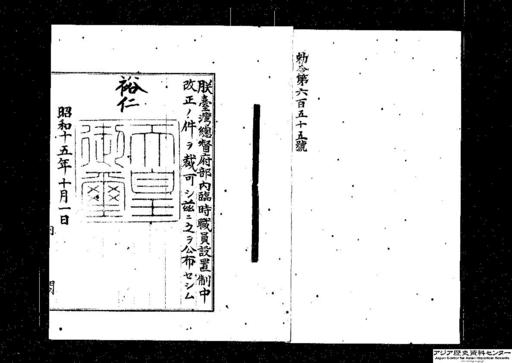 勅令第六百五十五號
朕臺灣總督府部內臨時職員設置制中
改正ノ件ヲ裁可シ茲ニ之ヲ公布セシム
裕仁
天皇
御璽
昭和十五年十月一日
內閣
アジア歴史資料センター
Japan Center for Asian Historical Records